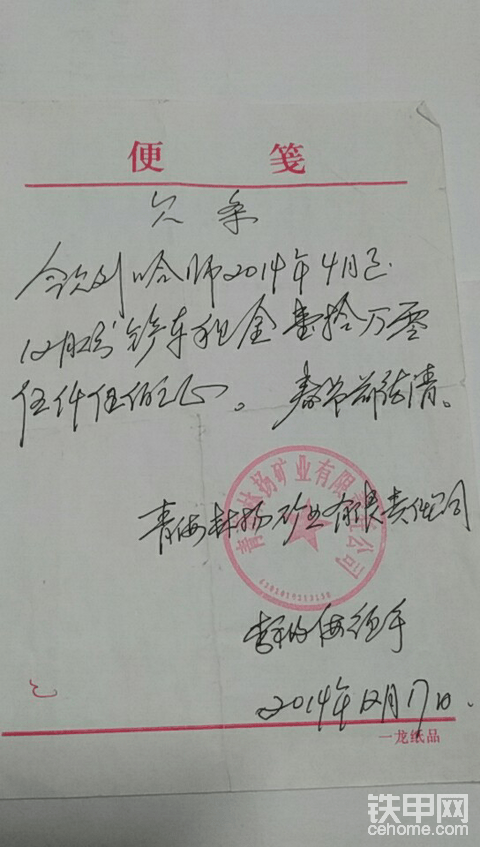 便 笺
欠 条
今欠到哈师2014年4月至
12月份铲车租金壹拾万零
伍仟伍佰元正。春节前结清。
青海林扬矿业有限责任公司
青海林扬矿业有限责任公司
经手
2014年12月17日.
一龙纸品
铁甲网
cehome.com